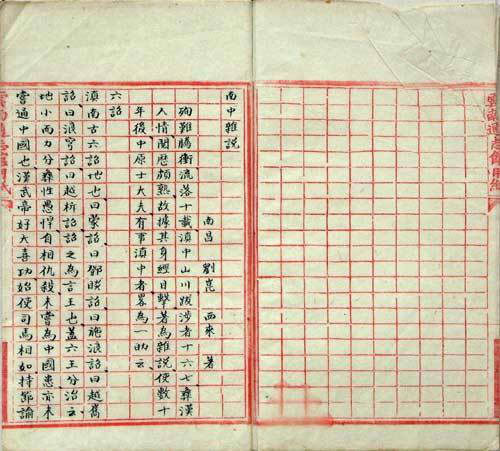 雲南通志館用紙
南中雜説
南昌 劉崑 西來 著
殉難騰衝流落十載滇中山川跋涉者十六七彝漢
人情閱歷頗熟故據其身經目擊著為雜説使數十
年後中原士大夫有事滇中者畧為一助云
六詔
滇南古六詔地也曰蒙詔曰鄧睒詔曰施浪詔曰越舊
詔曰浪穹詔曰越析詔詔之為言王也蓋六王分治云
地小而力分彝性愚悍自相仇殺未嘗為中國患亦未
嘗通中國也漢武帝好大喜功始使司馬相如持節諭
雲南通志館用紙